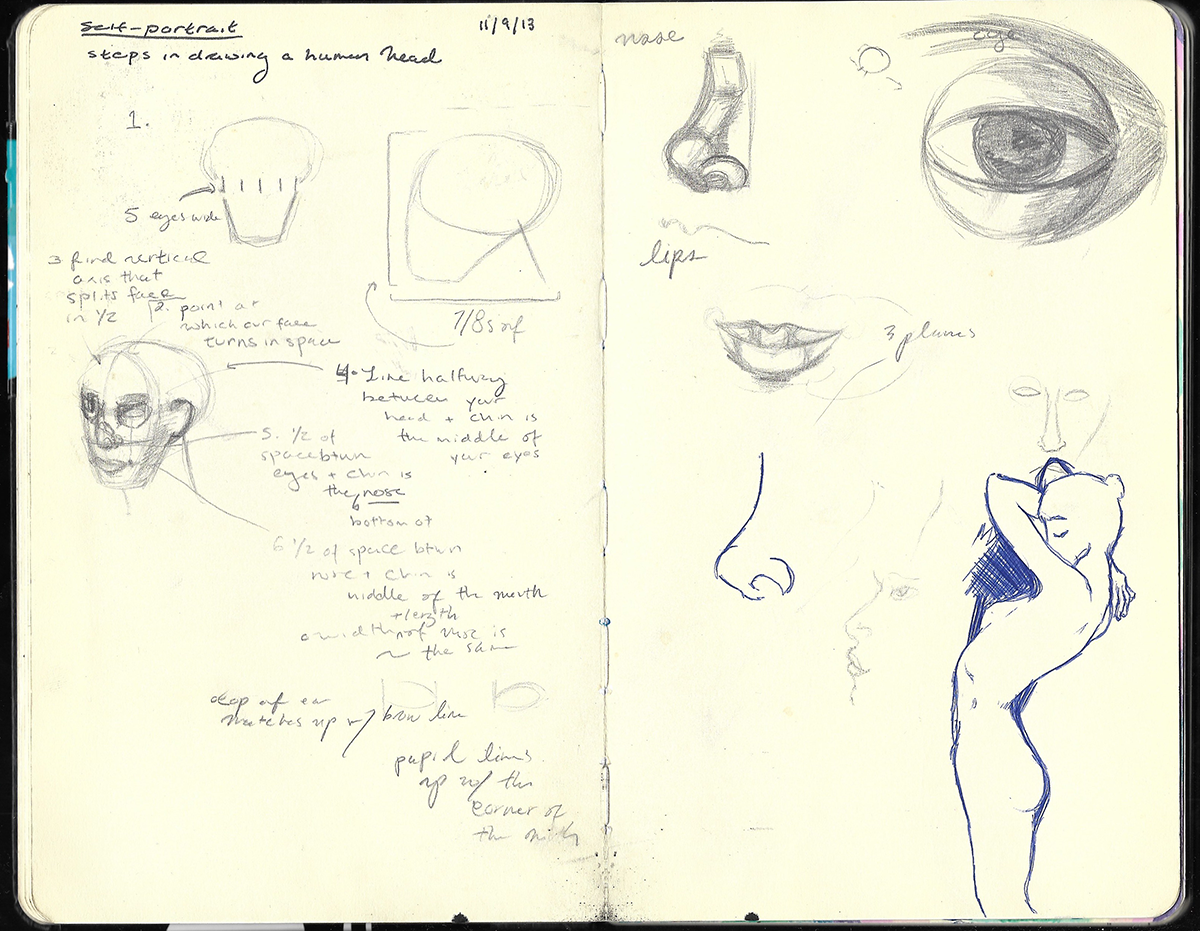 Self-portrait 11/9/13
steps in drawing a human head
1.
5 eyes wide
7/8s of
3 find vertical
axis that
splits face
in 1/2
2. point at
which our face
turns in space
4. Line halfway
between your
head + chin is
the middle of
your eyes
5. 1/2 of
space btwn
eyes + chin is
the nose
bottom of
6 1/2 of space btwn
nose + chin is
middle of the mouth
+ length
width of nose is
~ the same
top of ear
matches up w/ brow line
pupil lines
up w/ the
corner of
the
nose
eye
lips
3 planes